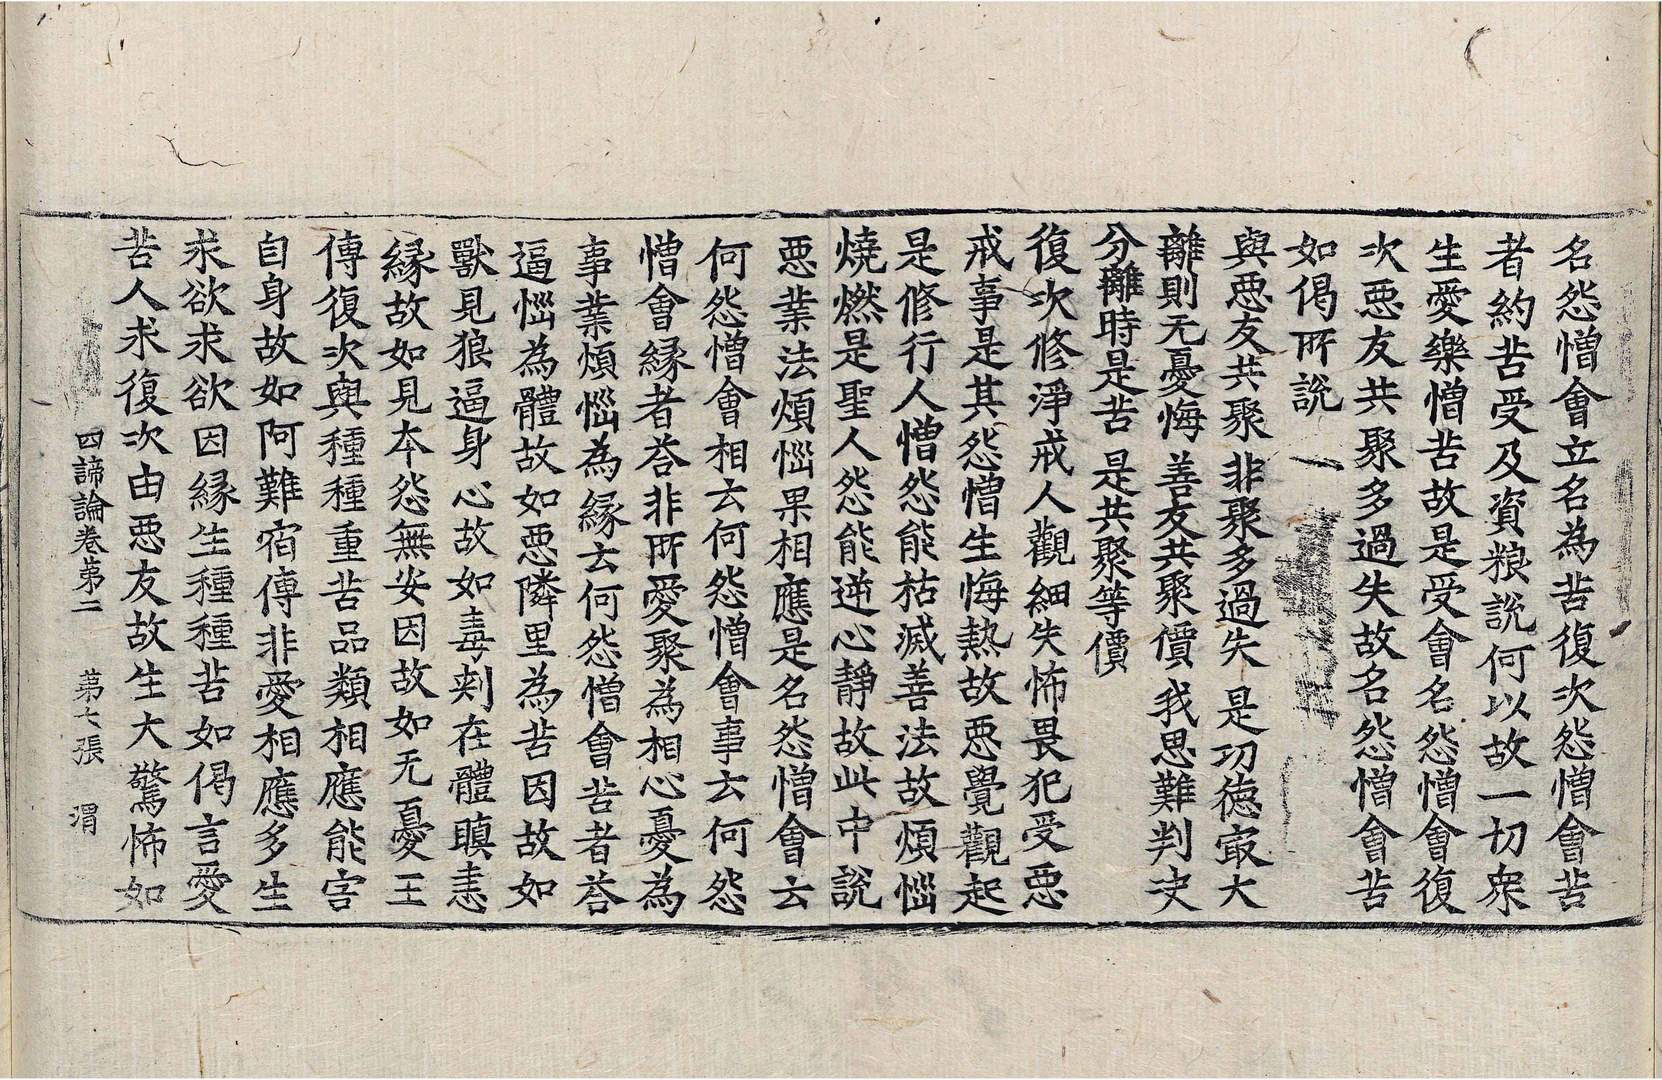 名怨憎會立名為苦復次怨憎會苦
者約苦受及資粮說何以故一切衆
生愛樂憎苦故是受會名怨憎會復
次惡友共聚多過失故名怨憎會苦
如偈所說
與惡友共聚 非聚多過失 是功徳㝡大
離則无憂悔 善友共聚價 我思難判决
分離時是苦 是共聚等價
復次修淨戒人觀細失怖畏犯受惡
戒事是其怨憎生悔熱故惡覺觀起
是修行人憎怨能枯滅善法故煩惱
燒燃是聖人怨能逆心靜故此中說
惡業法煩惱果相應是名怨憎會云
何怨憎會相云何怨憎會事云何怨
憎會縁者荅非所愛聚為相心憂為
事業煩惱為縁云何怨憎會苦者荅
逼惱為體故如惡隣里為苦因故如
獸見狼逼身心故如毒刾在體瞋恚
縁故如見本怨無安因故如无憂王
傳復次與種種重苦品類相應能害
自身故如阿難宿傳非愛相應多生
求欲求欲因縁生種種苦如偈言愛
苦人求復次由惡友故生大驚怖如
四諦論卷第二 第七張 渭